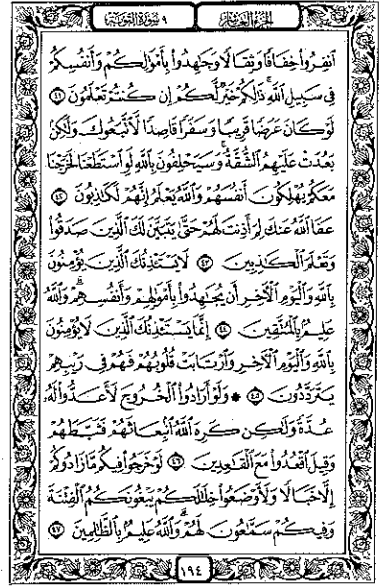 الجزء العاشر ٩ سورة التوبة
ٱنفِرُوا۟ خِفَافًا وَثِقَالًا وَجَٰهِدُوا۟ بِأَمْوَٰلِكُمْ وَأَنفُسِكُمْ
فِى سَبِيلِ ٱللَّهِ ۚ ذَٰلِكُمْ خَيْرٌ لَّكُمْ إِن كُنتُمْ تَعْلَمُونَ ٤١
لَوْ كَانَ عَرَضًا قَرِيبًا وَسَفَرًا قَاصِدًا لَّٱتَّبَعُوكَ وَلَٰكِنۢ
بَعُدَتْ عَلَيْهِمُ ٱلشُّقَّةُ ۚ وَسَيَحْلِفُونَ بِٱللَّهِ لَوِ ٱسْتَطَعْنَا لَخَرَجْنَا
مَعَكُمْ يُهْلِكُونَ أَنفُسَهُمْ وَٱللَّهُ يَعْلَمُ إِنَّهُمْ لَكَٰذِبُونَ ٤٢
عَفَا ٱللَّهُ عَنكَ لِمَ أَذِنتَ لَهُمْ حَتَّىٰ يَتَبَيَّنَ لَكَ ٱلَّذِينَ صَدَقُوا۟
وَتَعْلَمَ ٱلْكَٰذِبِينَ ٤٣ لَا يَسْتَـْٔذِنُكَ ٱلَّذِينَ يُؤْمِنُونَ
بِٱللَّهِ وَٱلْيَوْمِ ٱلْـَٔاخِرِ أَن يُجَٰهِدُوا۟ بِأَمْوَٰلِهِمْ وَأَنفُسِهِمْ ۗ وَٱللَّهُ
عَلِيمٌۢ بِٱلْمُتَّقِينَ ٤٤ إِنَّمَا يَسْتَـْٔذِنُكَ ٱلَّذِينَ لَا يُؤْمِنُونَ
بِٱللَّهِ وَٱلْيَوْمِ ٱلْـَٔاخِرِ وَٱرْتَابَتْ قُلُوبُهُمْ فَهُمْ فِى رَيْبِهِمْ
يَتَرَدَّدُونَ ٤٥ ۞ وَلَوْ أَرَادُوا۟ ٱلْخُرُوجَ لَأَعَدُّوا۟ لَهُۥ
عُدَّةً وَلَٰكِن كَرِهَ ٱللَّهُ ٱنۢبِعَاثَهُمْ فَثَبَّطَهُمْ
وَقِيلَ ٱقْعُدُوا۟ مَعَ ٱلْقَٰعِدِينَ ٤٦ لَوْ خَرَجُوا۟ فِيكُم مَّا زَادُوكُمْ
إِلَّا خَبَالًا وَلَأَوْضَعُوا۟ خِلَٰلَكُمْ يَبْغُونَكُمُ ٱلْفِتْنَةَ
وَفِيكُمْ سَمَّٰعُونَ لَهُمْ ۗ وَٱللَّهُ عَلِيمٌۢ بِٱلظَّٰلِمِينَ ٤٧
١٩٤